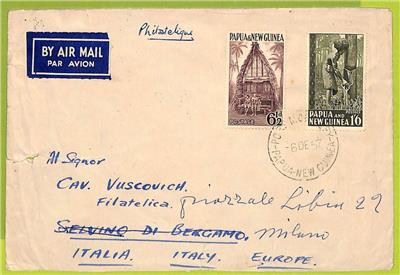 Philatelique
BY AIR MAIL
PAR AVION
PAPUA & NEW GUINEA
6½
POSTAGE
PAPUA AND
NEW GUINEA 1'6
-6 DE 57
PAPUA-NEW GUINEA
Al Signor
CAV. VUSCOVICH.
Filatelica. piazzale Libia 29
SELVINO DI BERGAMO, Milano
ITALIA. ITALY. EUROPE.